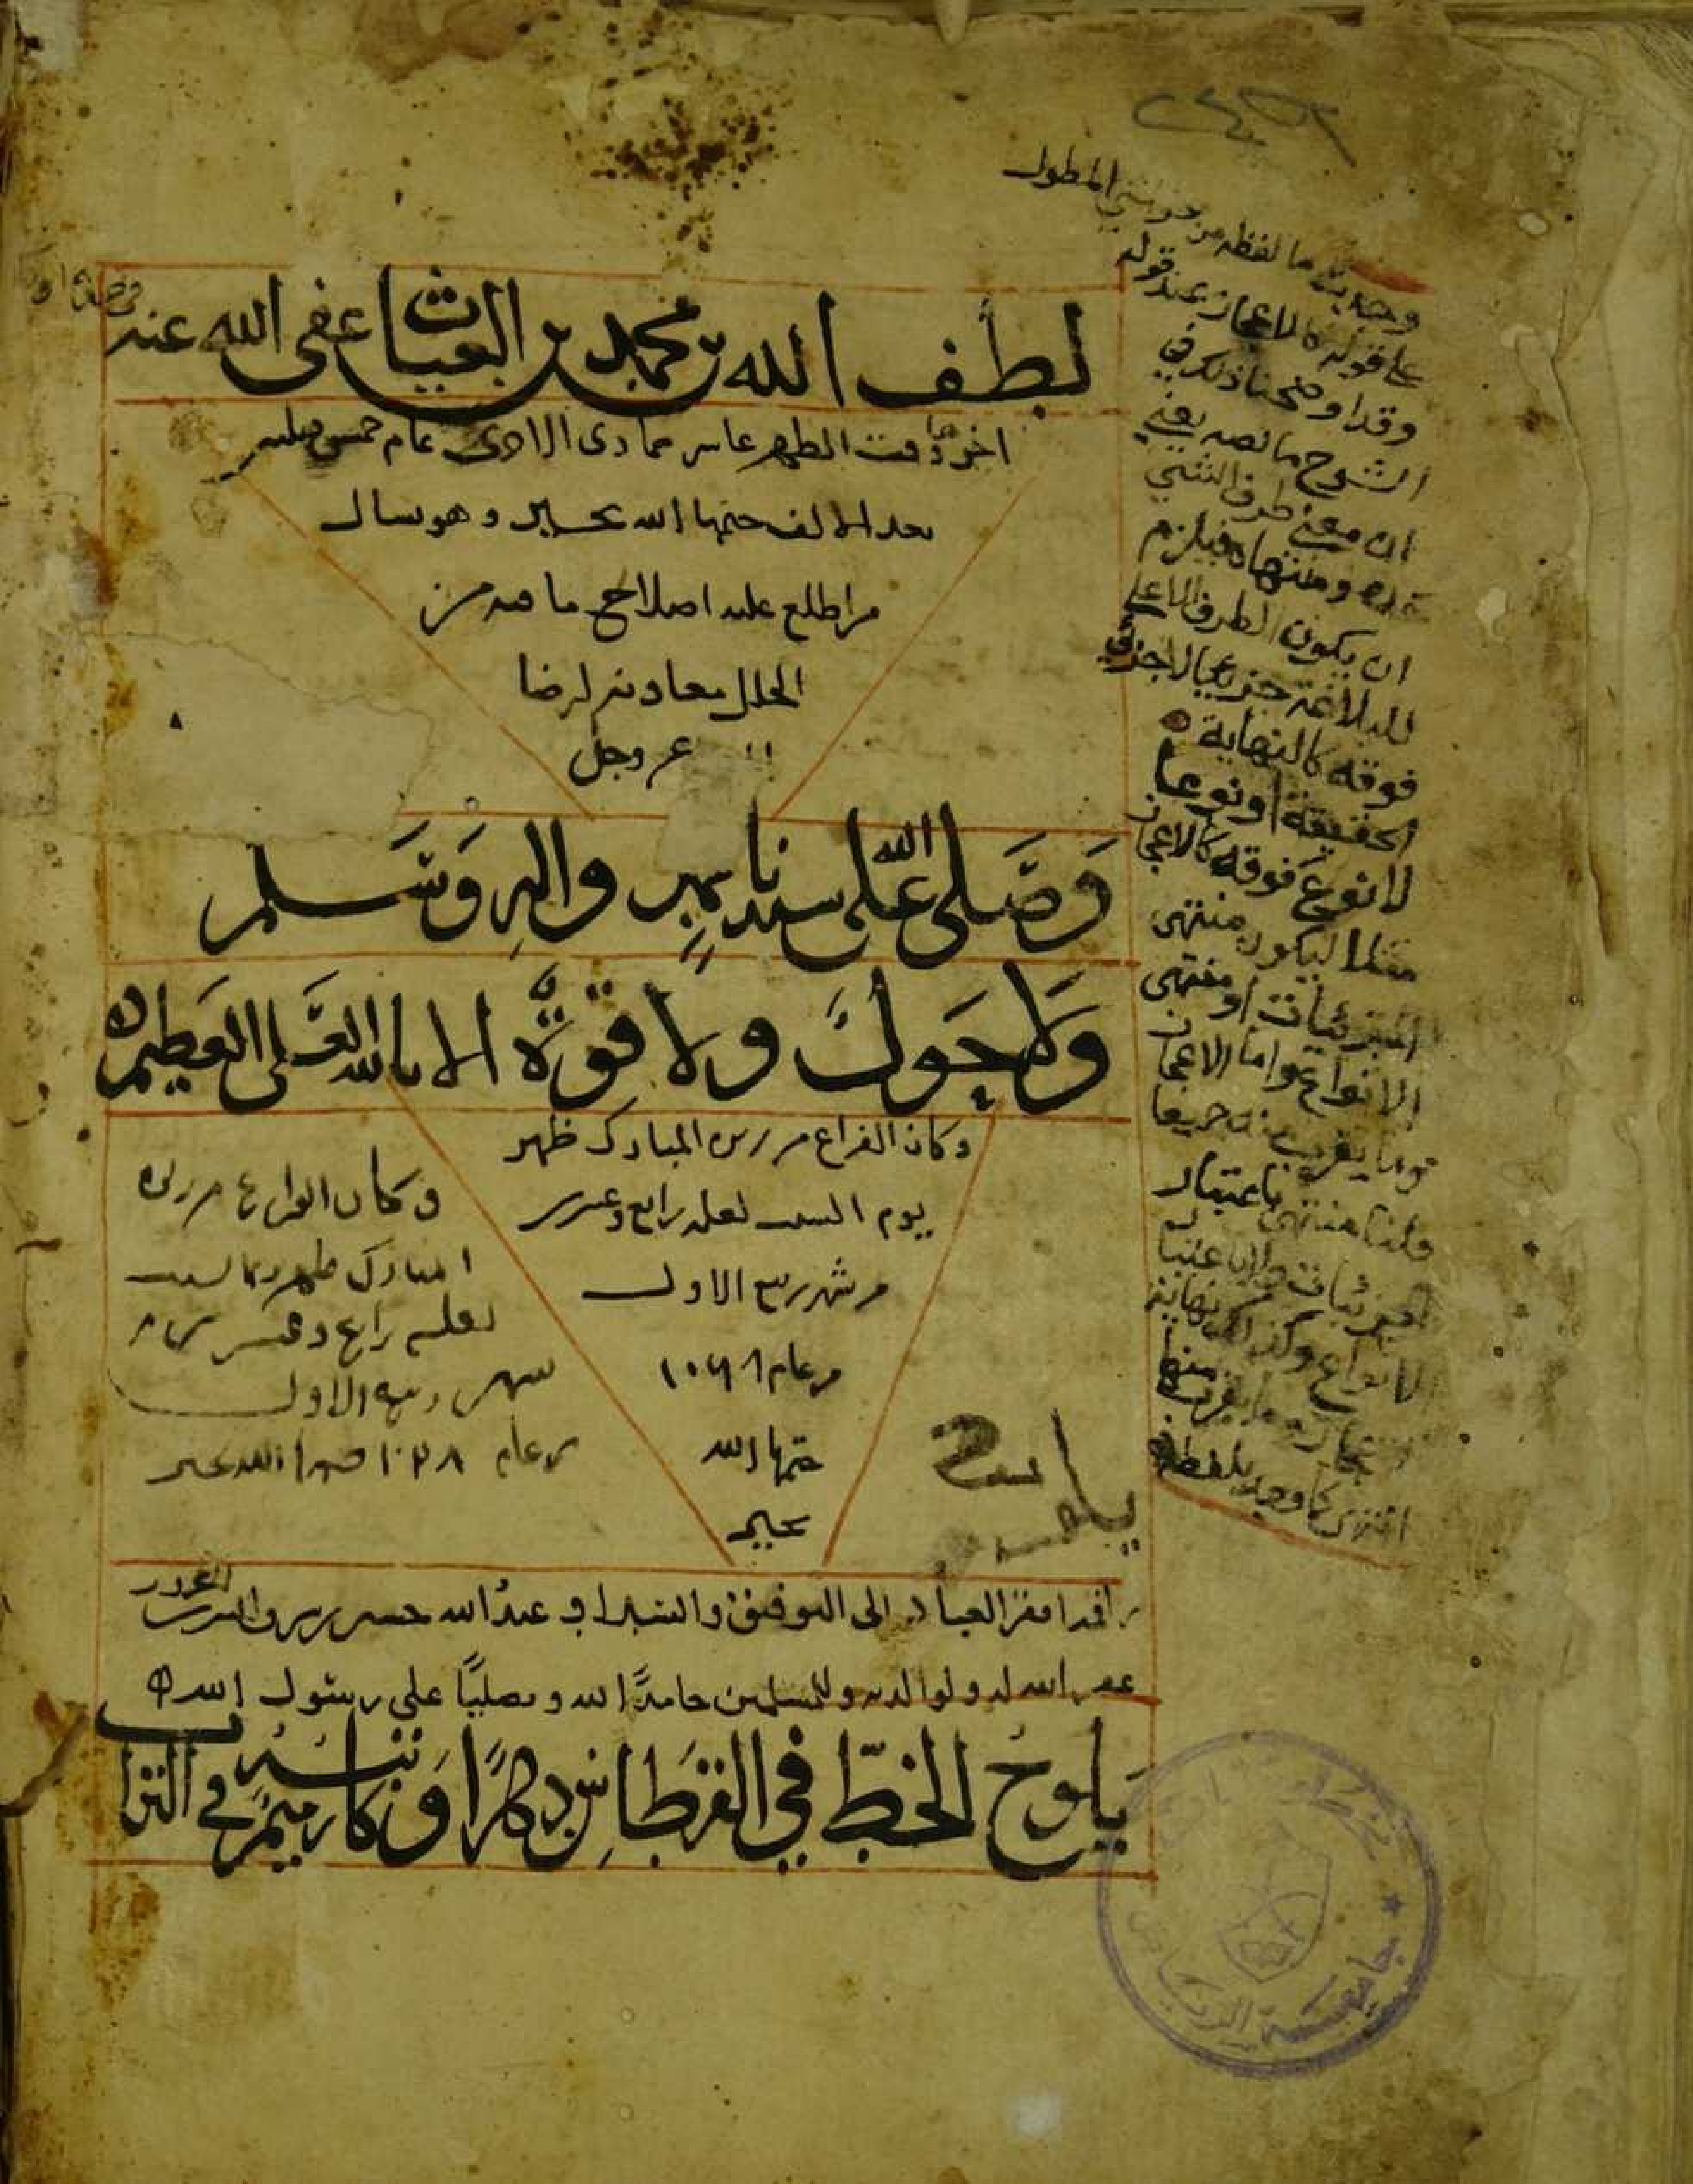 لطف الله بن محمد بن الغياث عفى الله عنه
اخر وقت الظهر عاشر جمادى الاولى عام خمس وثلثين
بعد الالف ختمها الله بخير وهو يسال
من اطلع عليه اصلاح ما فيه من
الخلل معاونه لرضا
عز وجل
وَصَلى الله عَلى سيدنا محمد والهِ وَسَلم
وَلا حَولَ ولا قوةَ الا بالله العَلى العَظيم
وكان الفراغ من زبره المبارك ظهر
يوم السبت لعله رابع وعشرين
من شهر ربيع الاول
من عام
ختمها الله
بخير
وكان الفراغ من زبره
المبارك ظهر يوم السبت
لعله رابع وعشرين من
شهر ربيع الاول
من عام ختمها الله بخير
افقر العباد الى التوفيق والسداد عبدُ الله حسين
غفر الله له ولوالديه وللمسلمين حامدًا لله ومصليًا على رسول الله
يَلوحُ الخطّ في القرطاسِ دهرًا وَكاتبُه رَميمٌ في التراب
المطول
وجد بخطه ما لفظه من حواشي
على قوله كالاعجاز عند قوله
وقد اوضحنا ذلك في
الشرح ما نصه يعني
ان معنى طرف الشي
حده ومنتهاه فيلزم
ان يكون الطرف الاعلى
للبلاغة جزئيا لا جزئي
فوقه كالنهاية
الحقيقة او نوعا
لا نوع فوقه كالاعجاز
مثلا ليكون منتهى
الجزئيات او منتهى
الانواع واما الاعجاز
وما يقرب منه جميعا
فلنا منتهى باعتبار
الجزئيات ولا باعتبار
الانواع وكذلك نهاية
الاعجاز وما يقرب منها
انتهى كما وجد بلفظه
جامعة الرياض